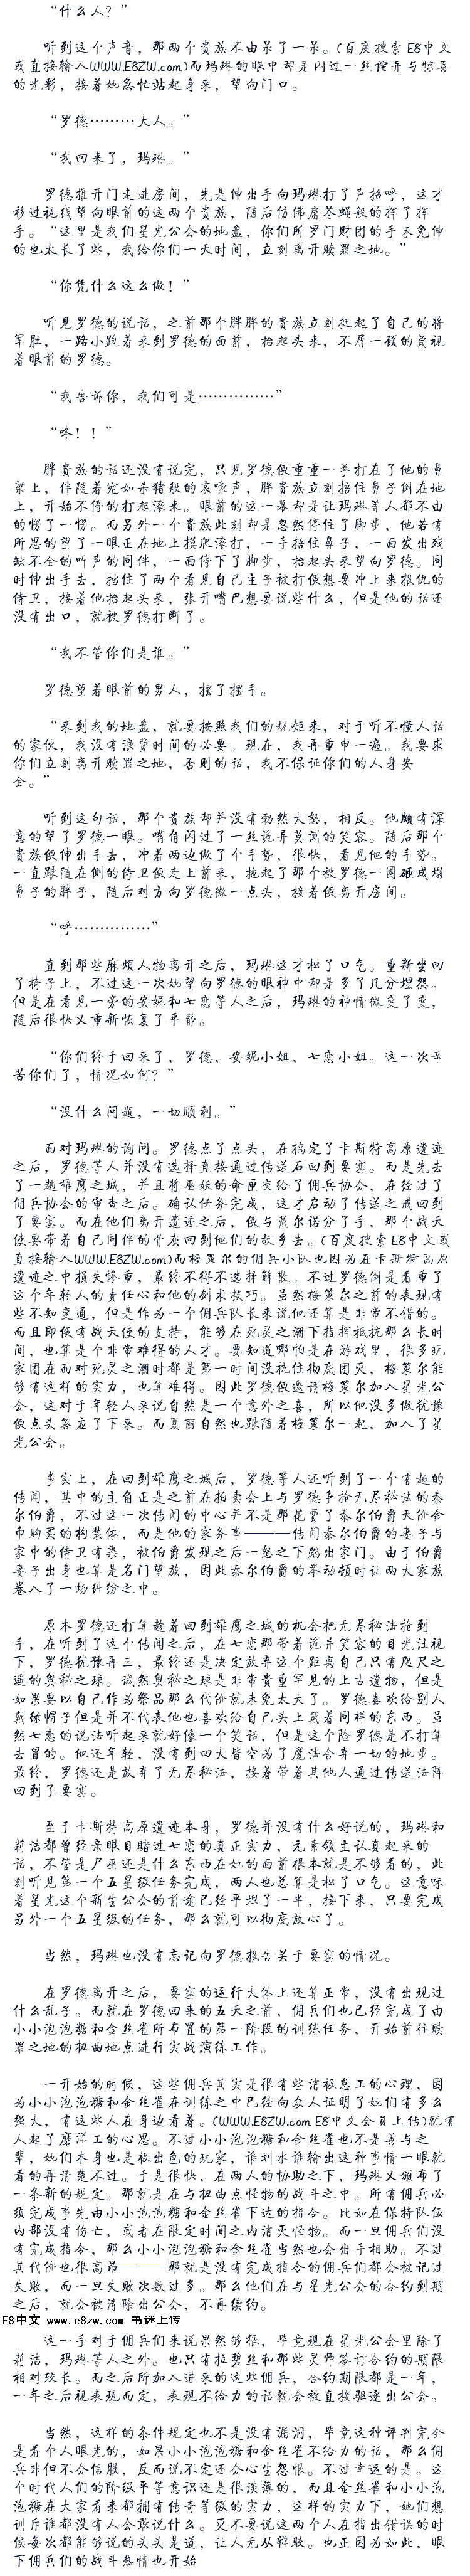 “什么人？”
听到这个声音，那两个贵族不由呆了一呆。(百度搜索E8中文
或直接输入WWW.E8ZW.com)而玛琳的眼中却是闪过一丝诧异与惊喜
的光彩，接着她急忙站起身来，望向门口。
“罗德………大人。”
“我回来了，玛琳。”
罗德推开门走进房间，先是伸出手向玛琳打了声招呼，这才
移过视线望向眼前的这两个贵族，随后仿佛赶苍蝇般的挥了挥
手。“这里是我们星光公会的地盘，你们所罗门财团的手未免伸
的也太长了些，我给你们一天时间，立刻离开赎罪之地。”
“你凭什么这么做！”
听见罗德的说话，之前那个胖胖的贵族立刻挺起了自己的将
军肚，一路小跑着来到罗德的面前，抬起头来，不屑一顾的蔑视
着眼前的罗德。
“我告诉你，我们可是……………”
“咚！！”
胖贵族的话还没有说完，只见罗德便重重一拳打在了他的鼻
梁上，伴随着宛如杀猪般的哀嚎声，胖贵族立刻捂住鼻子倒在地
上，开始不停的打起滚来。眼前的这一幕却是让琳等人都不由
的愣了一愣。而另外一个贵族此刻却是忽然停住了脚步，他若有
所思的望了一眼正在地上摸爬滚打，一手捂住鼻子，一面发出残
缺不全的听声的同伴，一面停下了脚步，抬起头来望向罗德。同
时伸出手去，挡住了两个看见自己主子被打便想要冲上来报仇的
侍卫，接着他抬起头来，张开嘴巴想要说些什么，但是他的话还
没有出口，就被罗德打断了。
“我不管你们是谁。”
罗德望着眼前的男人，摆了摆手。
“来到我的地盘，就要按照我们的规矩来，对于听不懂人话
的家伙，我没有浪费时间的必要。现在，我再重申一遍。我要求
你们立刻离开赎罪之地，否则的话，我不保证你们的人身安
全。”
听到这句话，那个贵族却并没有勃然大怒，相反。他颇有深
意的望了罗德一眼。嘴角闪过了一丝诡异莫测的笑容。随后那个
贵族便伸出手去，冲着两边做了个手势，很快，看见他的手势。
一直跟随在侧的侍卫便走上前来，拖起了那个被罗德一圈砸成塌
鼻子的胖子，随后对方向罗德微一点头，接着便离开房间。
“呼……………”
直到那些麻烦人物离开之后，玛琳这才松了口气。重新坐回
了椅子上，不过这一次她望向罗德的眼神中却是多了几分埋怨。
但是在看见一旁的安妮和七恋等人之后，玛琳的神情微变了变，
随后很快又重新恢复了平静。
“你们终于回来了，罗德，安妮小姐，七恋小姐。这一次辛
苦你们了，情况如何？”
“没什么问题，一切顺利。”
面对玛琳的询问。罗德点了点头，在搞定了卡斯特高原遗迹
之后，罗德等人并没有选择直接通过传送石回到要塞。而是先去
了一趟雄鹰之城，并且将巫妖的命匣交给了佣兵协会，在经过了
佣兵协会的审查之后。确认任务完成，这才启动了传送之戒回到
了要塞。而在他们离开遗迹之后，便与戴尔诺分了手，那个战天
使要带着自己同伴的骨灰回到他们的故乡去。(百度搜索E8中文或
直接输入WWW.E8ZW.com)而梅莱尔的佣兵小队也因为在卡斯特高原
遗迹之中损失惨重，最终不得不选择解散。不过罗德倒是看重了
这个年轻人的责任心和他的剑术技巧。虽然梅莱尔之前的表现有
些不知变通，但是作为一个佣兵队长来说他还算是非常不错的。
而且即便有战天使的支持，能够在死灵之潮下指挥抵抗那么长时
间，也算是个非常难得的人才。要知道哪怕是在游戏里，很多玩
家团在面对死灵之潮时都是第一时间没抗住彻底团灭，梅莱尔能
够有这样的实力，也算难得。因此罗德便邀请梅莱尔加入星光公
会，这对于年轻人来说自然是一个意外之喜，所以他没多做犹豫
便点头答应了下来。而夏丽自然也跟随着梅莱尔一起，加入了星
光公会。
事实上，在回到雄鹰之城后，罗德等人还听到了一个有趣的
传闻，其中的主角正是之前在拍卖会上与罗德争抢无尽秘法的泰
尔伯爵，不过这一次传闻的中心并不是那花费了泰尔伯爵天价金
币购买的构装体，而是他的家务事———传闻泰尔伯爵的妻子与
家中的侍卫有染，被伯爵发现之后一怒之下踹出家门。由于伯爵
妻子出身也算是名门望族，因此泰尔伯爵的举动顿时让两大家族
卷入了一场纠纷之中。
原本罗德还打算趁着回到雄鹰之城的机会把无尽秘法抢到
手，在听到了这个传闻之后，在七恋那带着诡异笑容的目光注视
下，罗德犹豫再三，最终还是决定放弃这个距离自己只有咫尺之
遥的奥秘之球。诚然奥秘之球是非常贵重罕见的上古遗物，但是
如果要以自己作为祭品那么代价就未免太大了。罗德喜欢给别人
戴绿帽子但是并不代表他也喜欢给自己头上戴着同样的东西。虽
然七恋的说法听起来就好像一个笑话，但是这个险罗德是不打算
去冒的。他还年轻，没有到四大皆空为了魔法舍弃一切的地步。
最终，罗德还是放弃了无尽秘法，接着带着其他人通过传送法阵
回到了要塞。
至于卡斯特高原遗迹本身，罗德并没有什么好说的，玛琳和
莉洁都曾经亲眼目睹过七恋的真正实力，元素领主认真起来的
话，不管是尸巫还是什么东西在她的面前根本就是不够看的，此
刻听见第一个五星级任务完成，两人也总算是松了口气。这意味
着星光这个新生公会的前途已经平坦了一半，接下来，只要完成
另外一个五星级的任务，那么就可以彻底放心了。
当然，玛琳也没有忘记向罗德报告关于要塞的情况。
在罗德离开之后，要塞的运行大体上还算正常，没有出现过
什么乱子。而就在罗德回来的五天之前，佣兵们也已经完成了由
小小泡泡糖和金丝雀所布置的第一阶段的训练任务，开始前往赎
罪之地的扭曲地点进行实战演练工作。
一开始的时候，这些佣兵其实是很有些消极怠工的心理，因
为小小泡泡糖和金丝雀在训练之中已经向众人证明了她们有多么
强大，有这些人在身边看着。(WWW.E8ZW.com E8中文会员上传)就有
人起了磨洋工的心思。不过小小泡泡糖和金丝雀也不是善与之
辈，她们本身也是极出色的玩家，谁划水谁输出这种事情一眼就
看的再清楚不过。于是很快，在两人的协助之下，玛琳又颁布了
一条新的规定。那就是在与扭曲点怪物的战斗之中。所有佣兵必
须完成事先由小小泡泡糖和金丝雀下达的指令。比如在保持队伍
内部没有伤亡，或者在限定时间之内消灭怪物。而一旦佣兵们没
有完成指令，那么小小泡泡糖和金丝雀当然也会出手相助。不过
其代价也很高昂———那就是没有完成指令的佣兵们都会被记过
失败，而一旦失败次数过多。那么他们在与星光公会的合约到期
之后，就会被清除出公会，不再续约。
E8中文 www.e8zw.com 书迷上传
这一手对于佣兵们来说果然够狠，毕竟现在星光公会里除了
莉洁，玛琳等人之外。也只有拉碧丝和那些灵师签订合约的期限
相对较长。而之后所加入进来的这些佣兵，合约期限都是一年，
一年之后视表现而定，表现不给力的话就会被直接驱逐出公会。
当然，这样的条件规定也不是没有漏洞，毕竟这种评判完全
是看个人眼光的，如果小小泡泡糖和金丝雀不给力的话，那么佣
兵非但不会信服，反而说不定还会心生怨恨。不过幸运的是。这
个时代人们的阶级平等意识还是很淡薄的，而且金丝雀和小小泡
泡糖在大家看来都拥有传奇等级的实力，这样的实力下，她们想
训斥谁都没有人会敢说什么。更不要说这两个人在指出错误的时
候每次都能够说的头头是道，让人无从辩驳。也正因为如此，眼
下佣兵们的战斗热情也开始